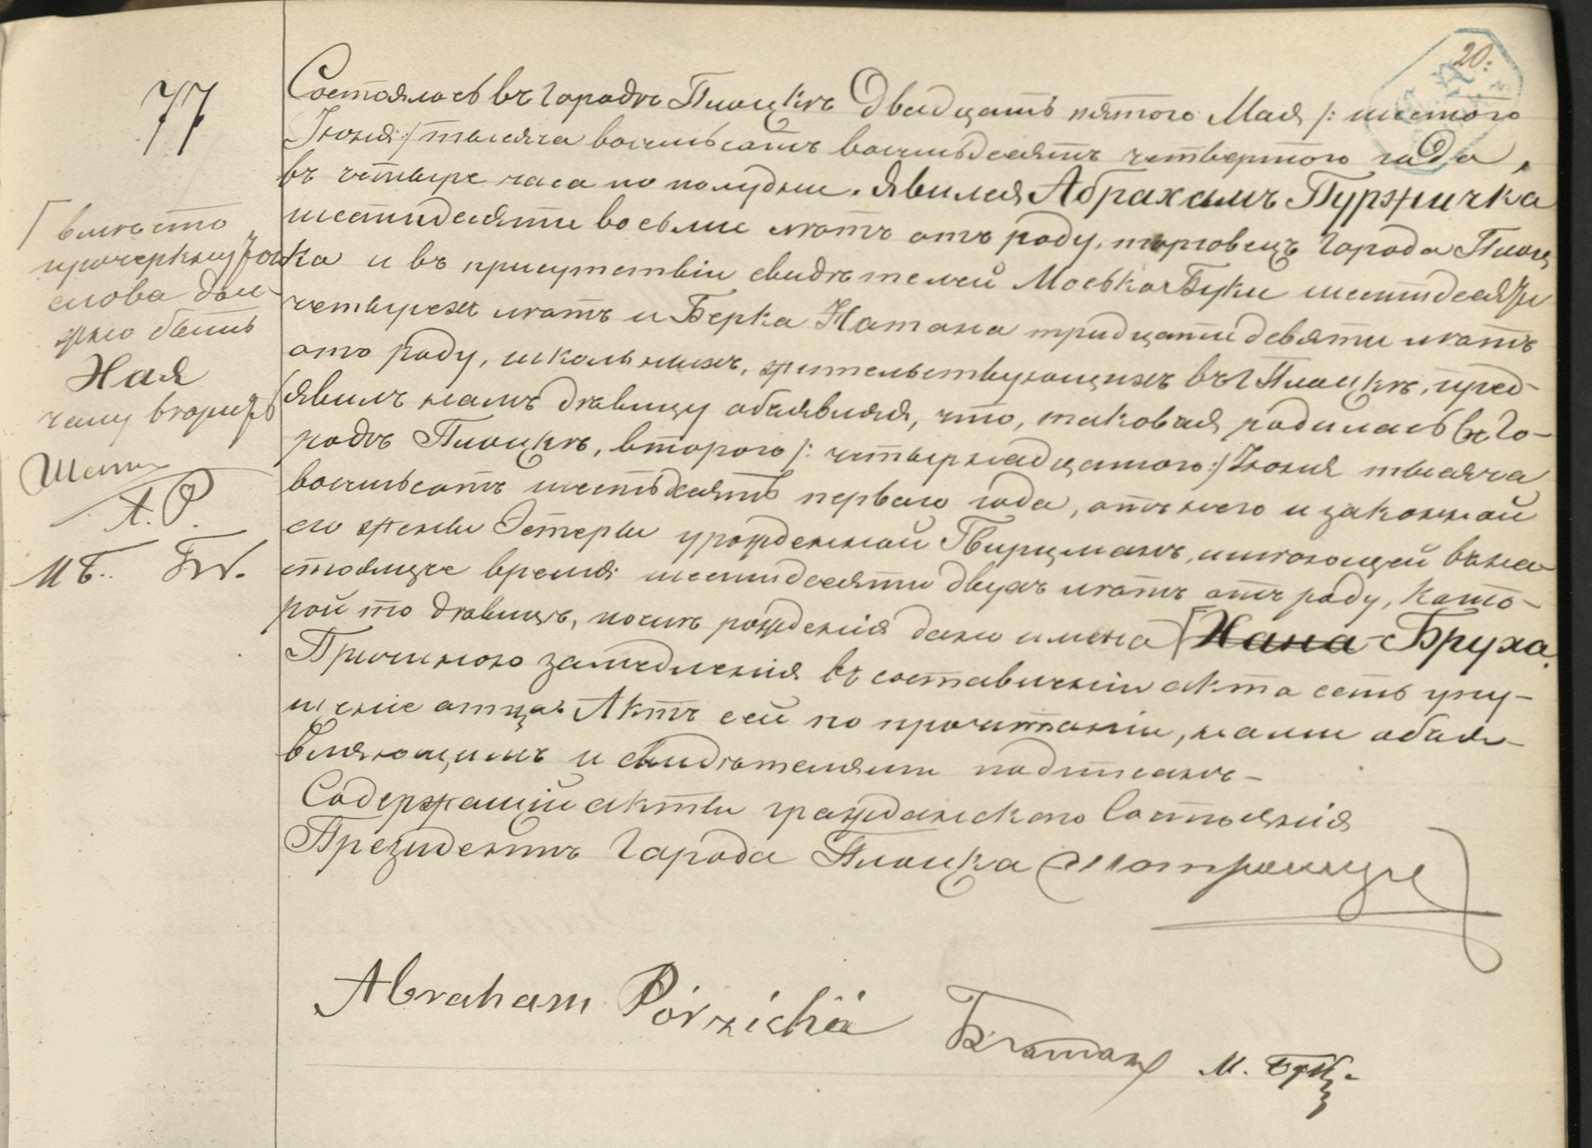 20.
77
Состоялось въ городѣ Плоцкѣ Двадцать пятого Мая /: шестого
Іюня :/ тысяча восемьсотъ восемьдесятъ четвертого года,
въ четыре часа по полудни. Явился Абрахамъ Пуржичка
шестидесяти восьми лѣтъ отъ роду, торговецъ города Плоц
ка и въ присутствіи свидѣтелей Моська Буки шестидесяти
четырехъ лѣтъ и Берка Натана тридцати девяти лѣтъ
отъ роду, школьныхъ, жительствующихъ въ г Плоцкѣ, пред-
явилъ намъ дѣвицу объявляя, что, таковая родилась въ Го-
родѣ Плоцкѣ, второго /: четырнадцатого :/ Іюня тысяча
восемьсотъ шестьдесятъ первого года, отъ него и законной
его жены Эстеры урожденной Гвирцманъ, имѣющей въ на-
стоящее время шестидесяти двухъ лѣтъ отъ роду, како-
рой то дѣвицѣ, посиѣ рожденія даны имена Хана-Бруха.
Причиною замедленія въ составленіи акта есть упу-
щеніе отца. Актъ сей по прочитаніи, нами объя-
вляющимъ и свидѣтелями подписанъ-
Содержащій акты гражданскаго Состоянія
Президентъ Города Плоцка
Abraham Pórzichka
БНатан М. Буки
вмѣсто
прочеркнутого
слова дол-
жно быть
Хая
чему вторитъ
А. Р.
М Б. БН.